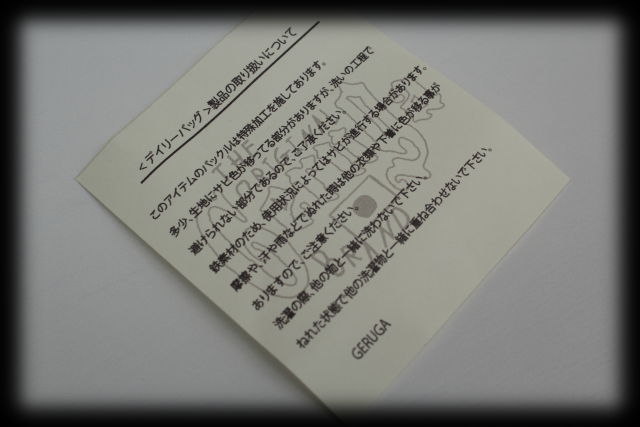 ＜デイリーバッグ＞製品の取り扱いについて
このアイテムのバックルは特殊加工を施してあります。
多少、生地にサビ色が移ってる部分がありますが、洗いの工程で
避けられない部分であるので ご了承ください。
鉄素材のため、使用状況によってはサビが進行する場合があります。
摩擦や、汗や雨などでぬれた時は他の衣類や下着に色が移る事が
ありますので、ご注意ください。
洗濯の際、他の物と一緒に洗わないで下さい。
ねれた状態で他の洗濯物と一緒に重ね合わせないで下さい。
GERUGA
THE
ORIGINAL
BRAND